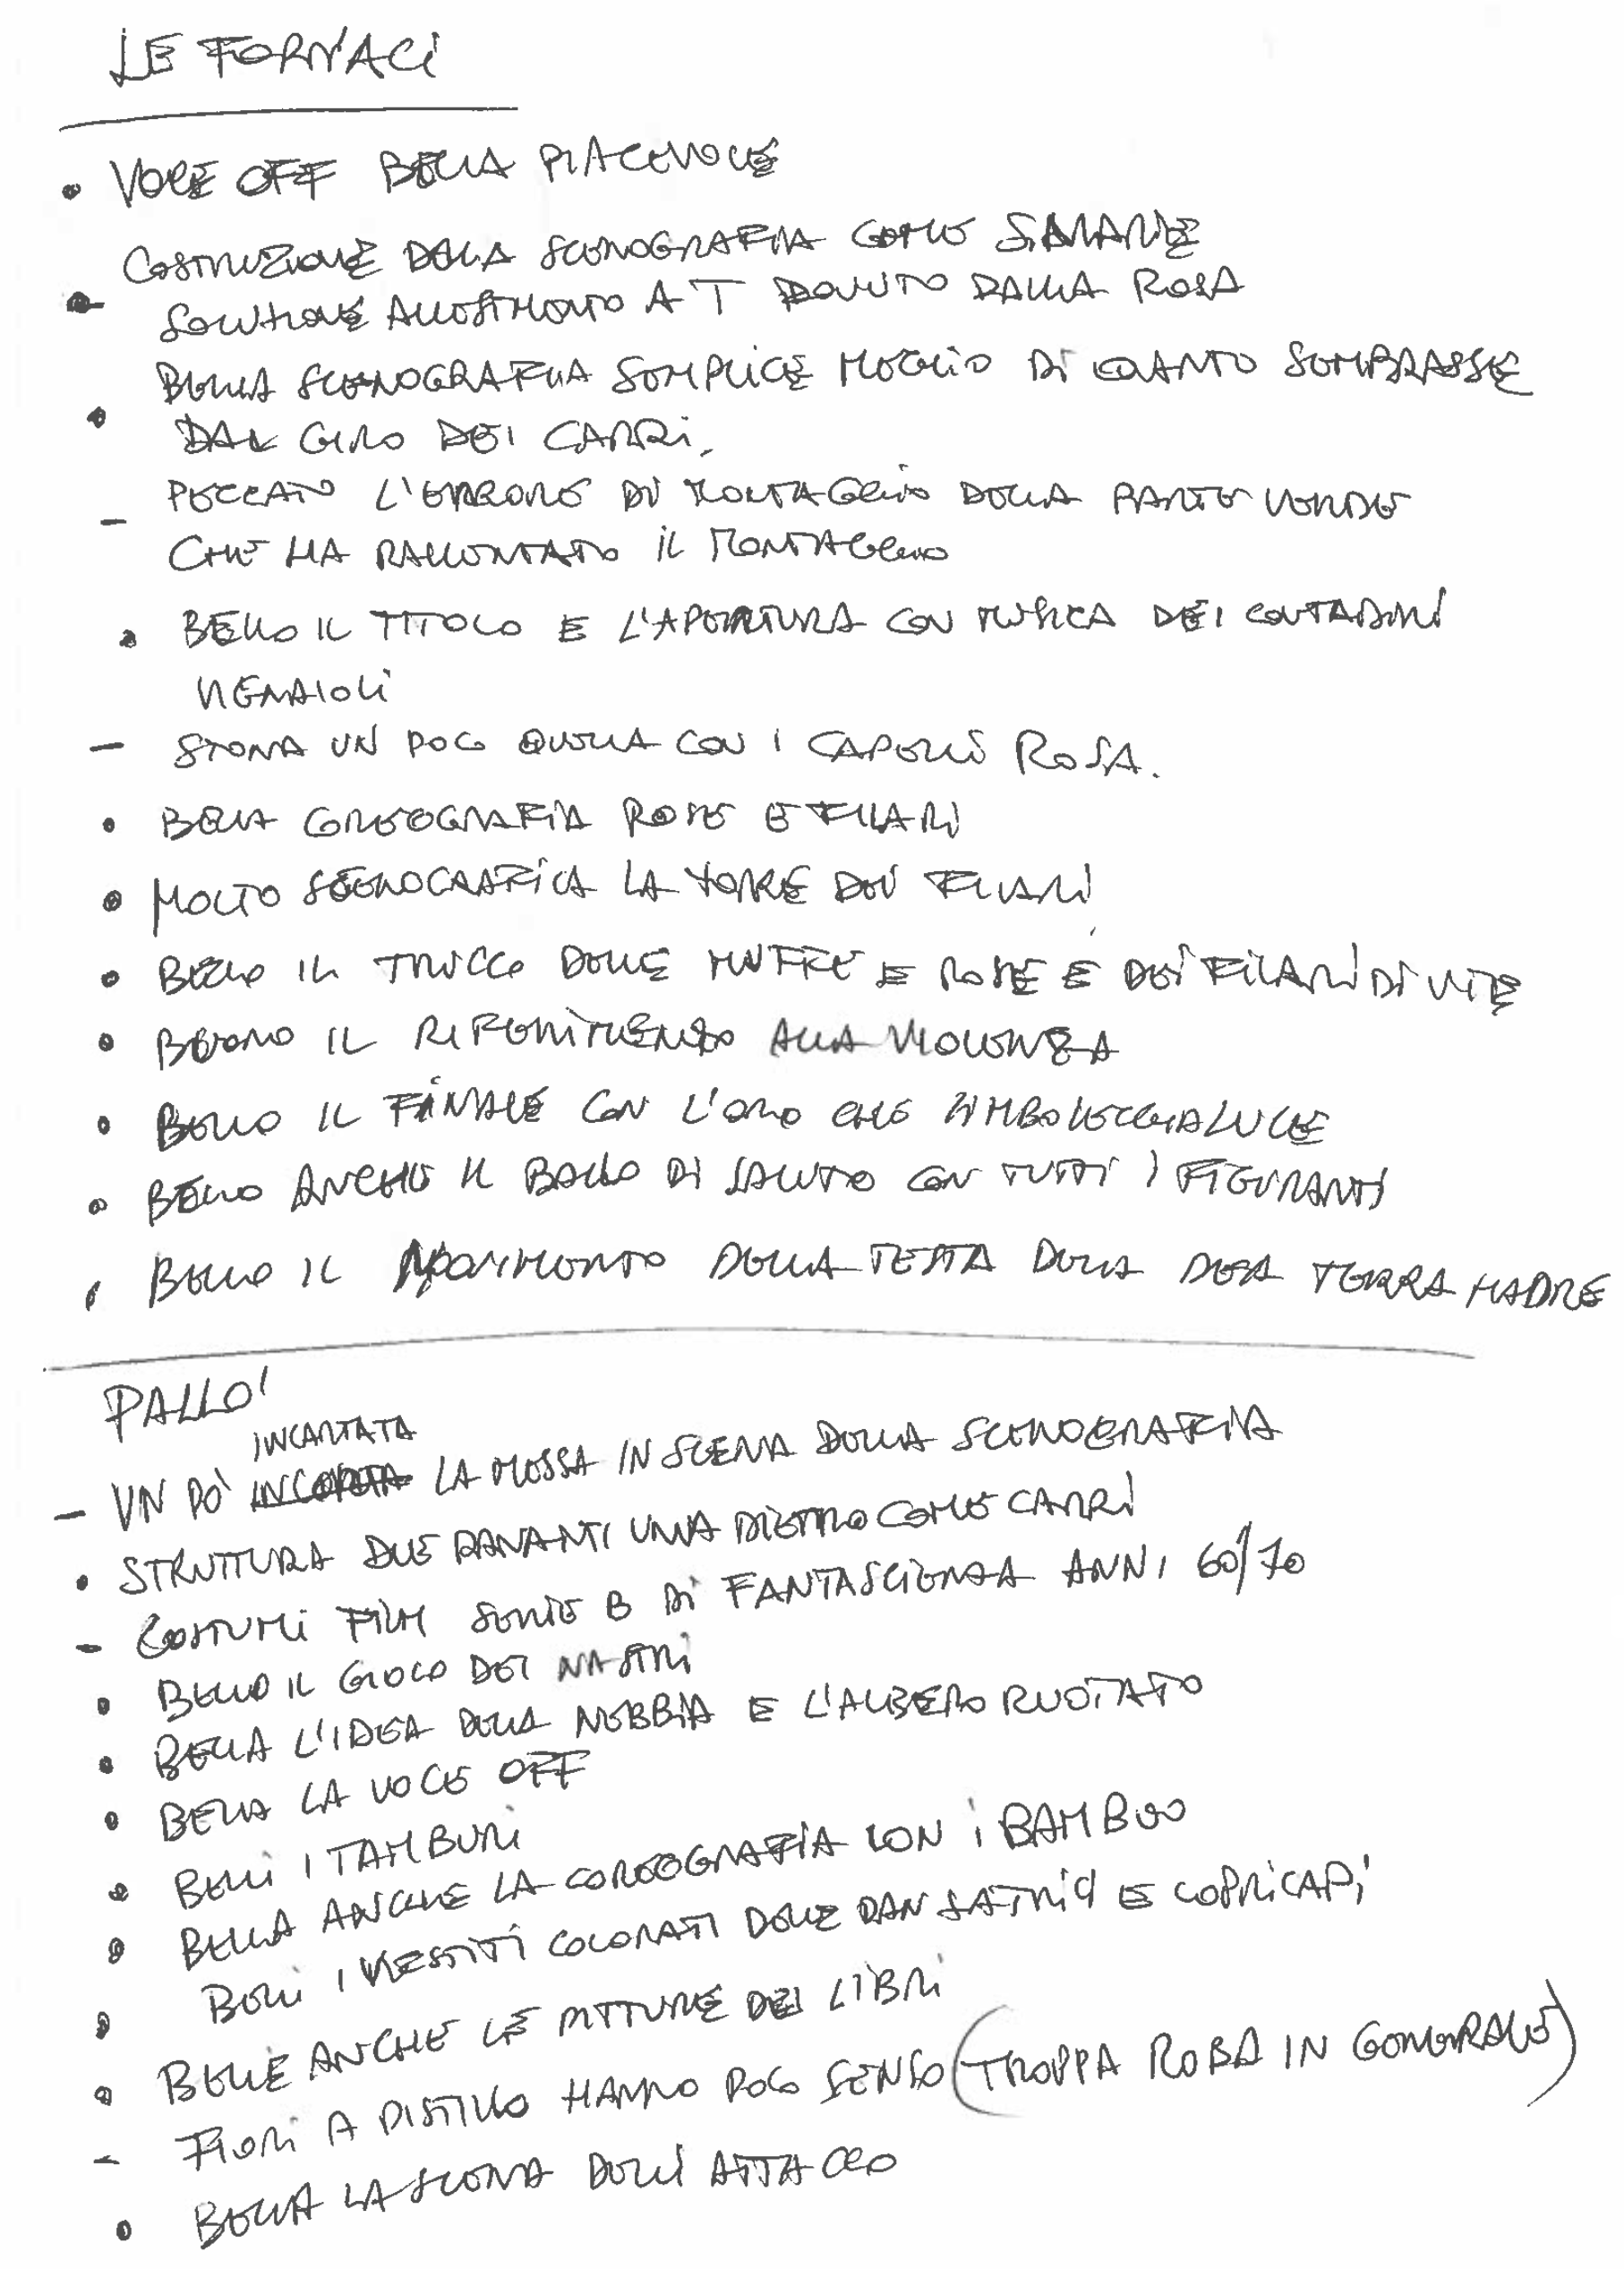 LE FORNACI
• VOCE OFF BELLA PIACEVOLE
• COSTRUZIONE DELLA SCENOGRAFIA COME
SOLUZIONE ALLESTIMENTO A T DOVUTO DALLA ROSA
• BELLA SCENOGRAFIA SEMPLICE MEGLIO DI QUANTO SEMBRASSE
DAL GIRO DEI CARRI,
– PECCATO L'ERRORE DI MONTAGGIO DELLA PARTE VERDE
CHE HA RALLENTATO IL MONTAGGIO
• BELLO IL TITOLO E L'APERTURA CON MUSICA DEI CONTADINI
VIGNAIOLI
– STONA UN POCO QUELLA CON I CAPELLI ROSA.
• BELLA COREOGRAFIA ROSE E FILARI
• MOLTO SCENOGRAFICA LA TORRE DEI FILARI
• BELLO IL TRUCCO DELLE MUFFE E ROSE E DEI FILARI DI VITE
• BUONO IL RIFERIMENTO ALLA VIOLENZA
• BELLO IL FINALE CON L'ORO CHE SIMBOLEGGIA LUCE
• BELLO ANCHE IL BALLO DI SALUTO CON TUTTI I FIGURANTI
• BELLO IL MOVIMENTO DELLA TESTA DELLA DEA TERRA MADRE
PALLO'
INCARTATA
– UN PO' LA MESSA IN SCENA DELLA SCENOGRAFIA
• STRUTTURA DUE DAVANTI UNA DIETRO COME CARRI
– COSTUMI FILM SERIE B DI FANTASCIENZA ANNI 60/70
• BELLO IL GIOCO DEI NASTRI
• BELLA L'IDEA DELLA NEBBIA E L'ALBERO RUOTATO
• BELLA LA VOCE OFF
• BELLI I TAMBURI
• BELLA ANCHE LA COREOGRAFIA CON I BAMBOO
• BELLI I VESTITI COLORATI DELLE DANZATRICI E COPRICAPI
• BELLE ANCHE LE PITTURE DEI LIBRI
– FIORI A PISTILLO HANNO POCO SENSO (TROPPA ROBA IN GENERALE)
• BELLA LA SCENA DELL'ATTACCO